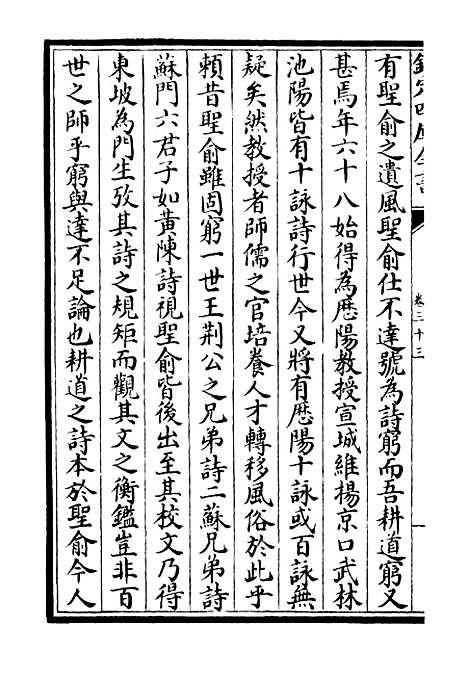 欽定四庫全書
卷三十三
有聖俞之遺風聖俞仕不達號為詩窮而吾耕道窮又
甚焉年六十八始得為厯陽教授宣城維揚京口武林
池陽皆有十詠詩行世今又將有厯陽十詠或百詠無
疑矣然教授者師儒之官培養人才轉移風俗於此乎
頼昔聖俞雖固窮一世王荆公之兄弟詩二蘇兄弟詩
蘇門六君子如黃陳詩視聖俞皆後出至其校文乃得
東坡為門生攷其詩之規矩而觀其文之衡鑑豈非百
世之師乎窮與達不足論也耕道之詩本於聖俞今人